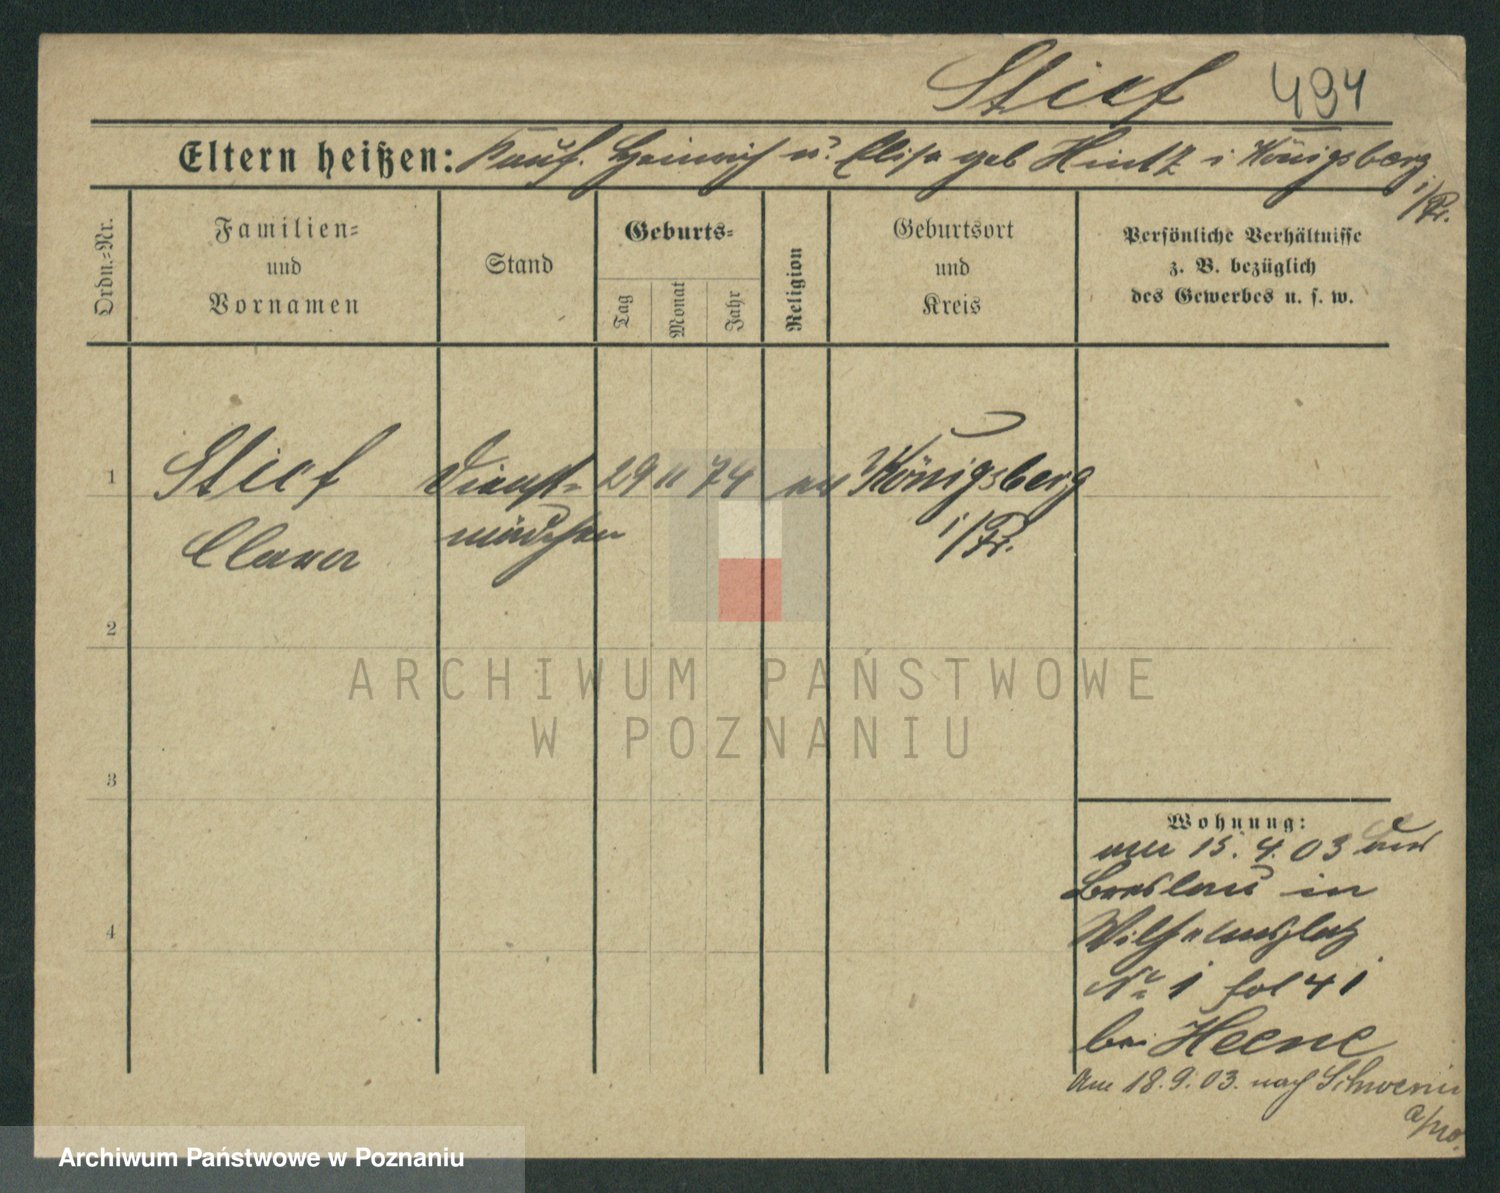 Stief 494
Eltern heißen: Kauf. Heinrich u. Elise geb Hintz i Königsberg
i/Pr.
Ordn.-Nr.
Familien-
und
Vornamen
Stand
Geburts-
Tag
Monat
Jahr
Religion
Geburtsort
und
Kreis
Persönliche Verhältnisse
z. B. bezüglich
des Gewerbes u. s. w.
1 Stief Dienst- 29 11 74 ev Königsberg
Clara mädchen i/Pr.
2
3
4
ARCHIWUM PAŃSTWOWE
W POZNANIU
Wohnung:
am 15. 4. 03 aus
Breslau in
Wilhelmsplatz
No 1 fol 41
bei Heene
Am 18. 9. 03. nach Schwerin
a/W.
Archiwum Państwowe w Poznaniu